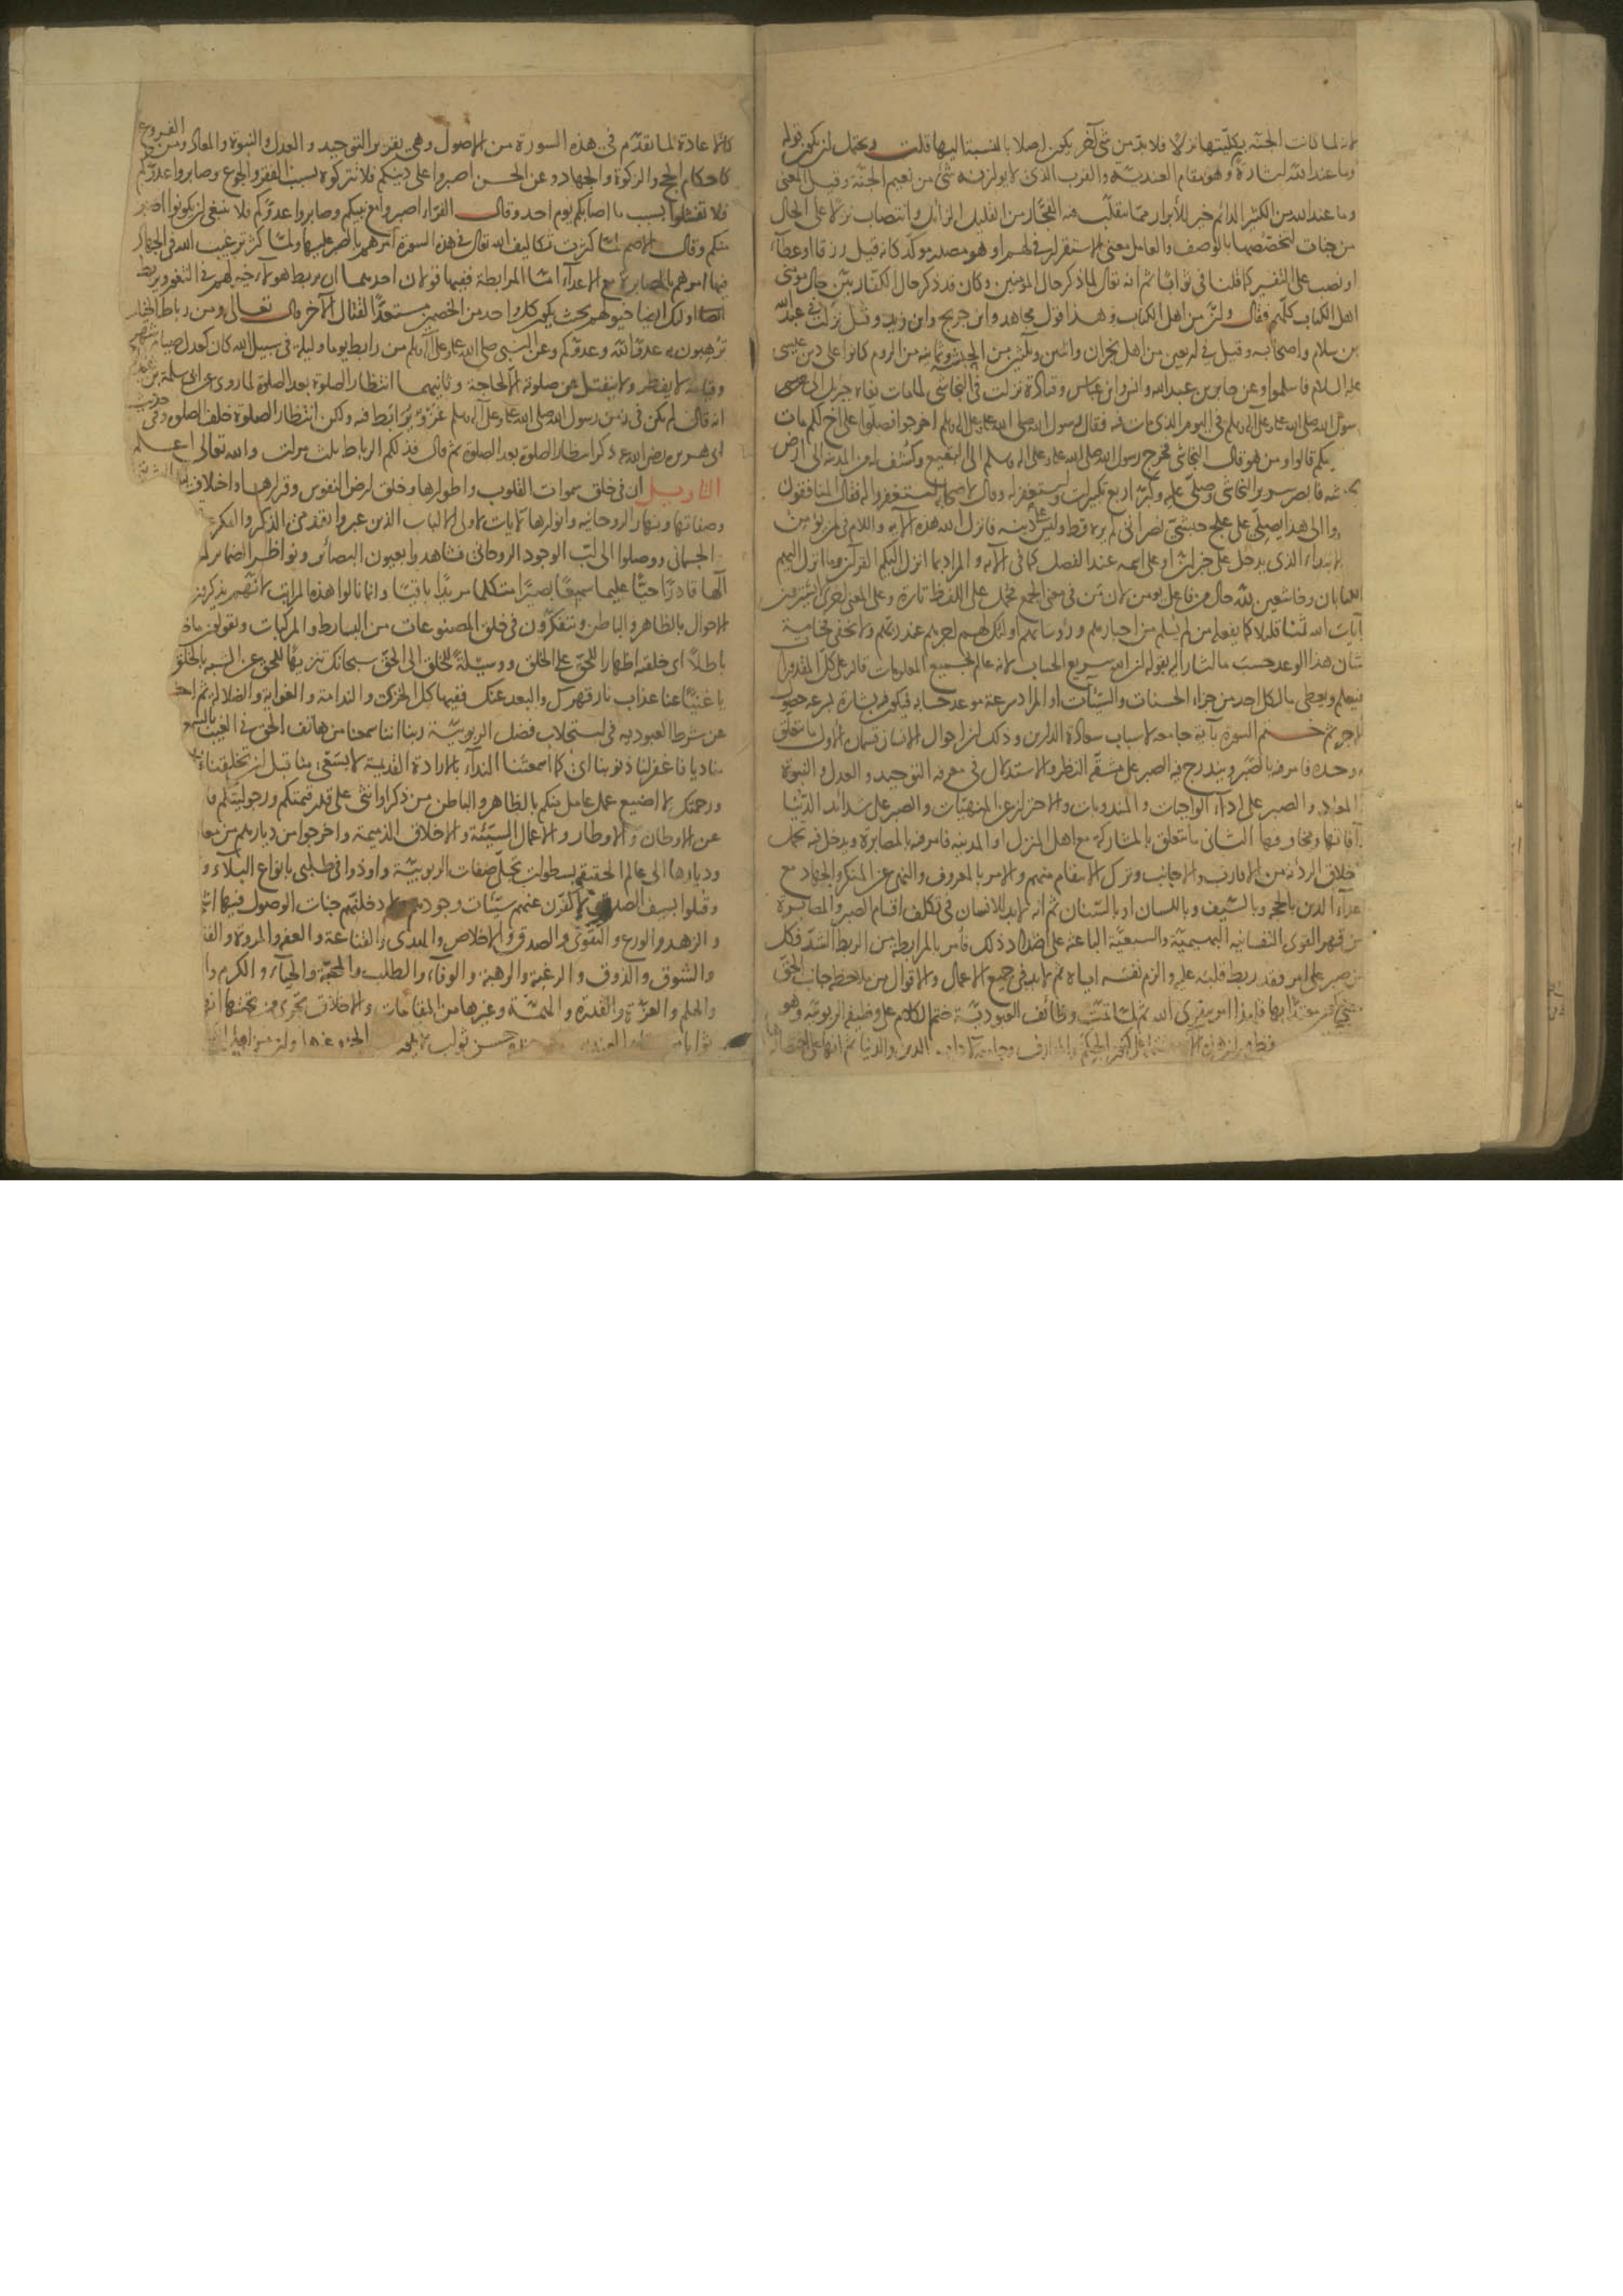 لانه لما كانت الجنة بكليتها نزلا فلا بد من شئ آخر يكون اصلا بالنسبة اليها قلت ويحتمل ان يكون قوله
وما عند الله اشارة الى مقام العندية والقرب الذى لا يوازيه شئ من نعيم الجنة وقيل المعنى
وما عند الله من الكثير الدائم خير للأبرار مما يتقلب فيه الفجار من القليل الزائل وانتصاب نزلا على الحال
من جنات لتخصصها بالوصف والعامل معنى الاستقرار فى لهم او هو مصدر موكد كانه قيل رزقا او عطاء
او نصب على التفسير كما قلنا فى ثوابا ثم انه تعالى لما ذكر حال المؤمنين وكان قد ذكر حال الكفار بين حال مومنى
اهل الكتاب كلهم فقال وان من اهل الكتاب وهذا قول مجاهد وابن جريج وابن زيد وقيل نزلت فى عبد الله
بن سلام واصحابه وقيل فى اربعين من اهل نجران واثنين وثلثين من الحبشة وثمانية من الروم كانوا على دين عيسى
عليه السلام فاسلموا وعن جابر بن عبد الله وانس وابن عباس وقتادة نزلت فى النجاشى لما مات نعاه جبريل الى
رسول الله صلى الله عليه وعلى آله وسلم فى اليوم الذى مات فيه فقال رسول الله صلى الله عليه وعلى آله وسلم اخرجوا فصلوا على اخ لكم مات
قالوا ومن هو قال النجاشى فخرج رسول الله صلى الله عليه وعلى آله وسلم الى البقيع وكشف له من المدينة الى ارض
الحبشة فابصر سرير النجاشى وصلى عليه وكبر اربع تكبيرات واستغفر له وقال لاصحابه استغفروا له فقال المنافقون
هذا يصلى على علج حبشى نصرانى لم يره قط وليس على دينه فانزل الله هذه الآية واللام فى لمن يؤمن
لام الابتداء الذى يدخل على خبر ان او على اسمه عند الفصل كما فى الآية والمراد بما انزل اليكم القرآن وما انزل اليهم
الكتابان وخاشعين لله حال من فاعل يؤمن لان من فى معنى الجمع فحمل على اللفظ تارة وعلى المعنى اخرى لا يشترون
بآيات الله ثمنا قليلا كما يفعله من لم يسلم من احبارهم ورؤسائهم اولئك لهم اجرهم عند ربهم ولا يخفى فخامة
شان هذا الوعد حسب ما اشار اليه بقوله ان الله سريع الحساب لانه عالم بجميع المعلومات قادر على كل المقدورات
فيعلم ويعطى ما لكل احد من جزاء الحسنات والسيئات او المراد سرعة موعد حسابه فيكون فيه بشارة بسرعة حصول
الاجر ثم ختم السورة بآية جامعة لاسباب سعادة الدارين وذلك ان احوال الانسان قسمان الاول ما يتعلق
به وحده فامر فيه بالصبر ويندرج فيه الصبر على مشقة النظر والاستدلال فى معرفة التوحيد والعدل والنبوة
والمعاد والصبر على اداء الواجبات والمندوبات والاحتراز عن المنهيات والصبر على شدائد الدنيا
وآفاتها ومخاوفها الثانى ما يتعلق بالمشاركة مع اهل المنزل او المدينة فامر فيه بالمصابرة ويدخل فيه تحمل
الاخلاق الردية من الاقارب والاجانب وترك الانتقام منهم والامر بالمعروف والنهى عن المنكر والجهاد مع
اعداء الدين بالحجة وبالسيف وباللسان او بالسنان ثم انه لابد للانسان فى تكلف اقسام الصبر والمصابرة
من قهر القوى النفسانية البهيمية والسبعية الباعثة على اضداد ذلك فامر بالمرابطة من الربط الشد فكل
من صبر على امر فقد ربط قلبه عليه والزم نفسه اياه ثم لابد فى جميع الاعمال والاقوال من ملاحظة جانب الحق
حتى يكون معتدا بها فلهذا امر بتقوى الله ثم لما تمت وظائف العبودية ختم الكلام على وظيفة الربوبية وهو
كالاعادة لما تقدم فى هذه السورة من الاصول وهى تقرير التوحيد والعدل والنبوة والمعاد ومن الفروع
كاحكام الحج والزكوة والجهاد وعن الحسن اصبروا على دينكم فلا تتركوه بسبب الفقر والجوع وصابروا عدوكم
فلا تفشلوا بسبب ما اصابكم يوم احد وقال الفراء اصبروا مع نبيكم وصابروا عدوكم فلا ينبغى ان يكونوا اصبر
منكم وقال الاصم لما كثرت تكاليف الله تعالى فى هذه السورة امرهم بالصبر عليها ولما كثر ترغيب الله فى الجهاد
فيها امرهم بالمصابرة مع الاعداء اما المرابطة ففيها قولان احدهما ان يربط هولاء خيلهم فى الثغور ويربط
اولئك ايضا خيولهم بحيث يكون كل واحد من الخصمين مستعدا لقتال الآخر قال تعالى ومن رباط الخيل
ترهبون به عدو الله وعدوكم وعن النبى صلى الله عليه وعلى آله وسلم من رابط يوما وليلة فى سبيل الله كان كعدل صيام شهر
وقيامه لا يفطر ولا ينفتل عن صلوته الا لحاجة وثانيهما انتظار الصلوة بعد الصلوة لما روى عن ابى سلمة بن عبد
انه قال لم يكن فى زمن رسول الله صلى الله عليه وعلى آله وسلم غزو يرابط فيه ولكن انتظار الصلوة خلف الصلوة وفى حديث
ابى هريرة رضى الله عنه ذكر انتظار الصلوة بعد الصلوة ثم قال فذلكم الرباط ثلث مرات والله تعالى اعلم
التاويل ان فى خلق سموات القلوب واطوارها وخلق ارض النفوس وقرارها واختلاف
وصفاتها ونهار الروحانية وانوارها لآيات لاولى الالباب الذين عبروا بقدمى الذكر والفكر
الجسمانى ووصلوا الى لب الوجود الروحانى فشاهدوا بعيون البصائر ونواظر الضمائر
آلها قادرا حيا عليما سميعا بصيرا متكلما مريدا باقيا وانما نالوا هذه المراتب لانهم يذكرون
الاحوال بالظاهر والباطن ويتفكرون فى خلق المصنوعات من البسائط والمركبات ويقولون ما
باطلا اى خلقه اظهارا للحق على الخلق ووسيلة للخلق الى الحق سبحانك تنزيها للحق عن الشبه بالخلق
يا غنيا عنا عذاب نار قهرك والبعد عنك ففيها كل الخزى والندامة والغواية والضلالة ثم
عن شرط العبودية فى استجلاب فضل الربوبية ربنا اننا سمعنا من هاتف الحق فى الغيب
مناديا فاغفر لنا ذنوبنا اى كما اسمعتنا النداء بالارادة القديمة لا بسعى منا قبل ان تخلقنا
ورحمتك لا اضيع عمل عامل منكم بالظاهر والباطن من ذكر او انثى على قدر همتكم ورجوليتكم
عن الاوطان والاوطار والاعمال السيئة والاخلاق الذميمة واخرجوا من ديارهم من
وديارها الى عالم الحقيقة بسطوات تجلى صفات الربوبية واوذوا فى طلبى بانواع البلاء و
وقتلوا بسيف الصدق لاكفرن عنهم سيئات وجودهم ولادخلنهم جنات الوصول فيها
والزهد والورع والتقوى والصدق والاخلاص والهدى والقناعة والعفة والمروة
والشوق والذوق والرغبة والرهبة والوفاء والطلب والمحبة والحياء والكرم
والحلم والعزة والقدرة والهمة وغيرها من المقامات والاخلاق تجرى من تحتها
ثوابا من عند الله حسن ثواب